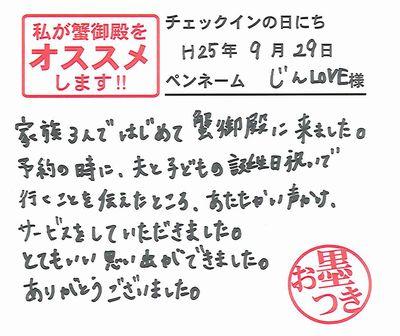 私が蟹御殿を
オススメ
します!!
チェックインの日にち
H25年 9月 29日
ペンネーム じんLOVE様
家族3人ではじめて蟹御殿に来ました。
予約の時に、夫と子どもの誕生日祝いで
行くことを伝えたところ、あたたかい声かけ、
サービスをしていただきました。
とてもいい思い出ができました。
ありがとうございました。
お墨つき